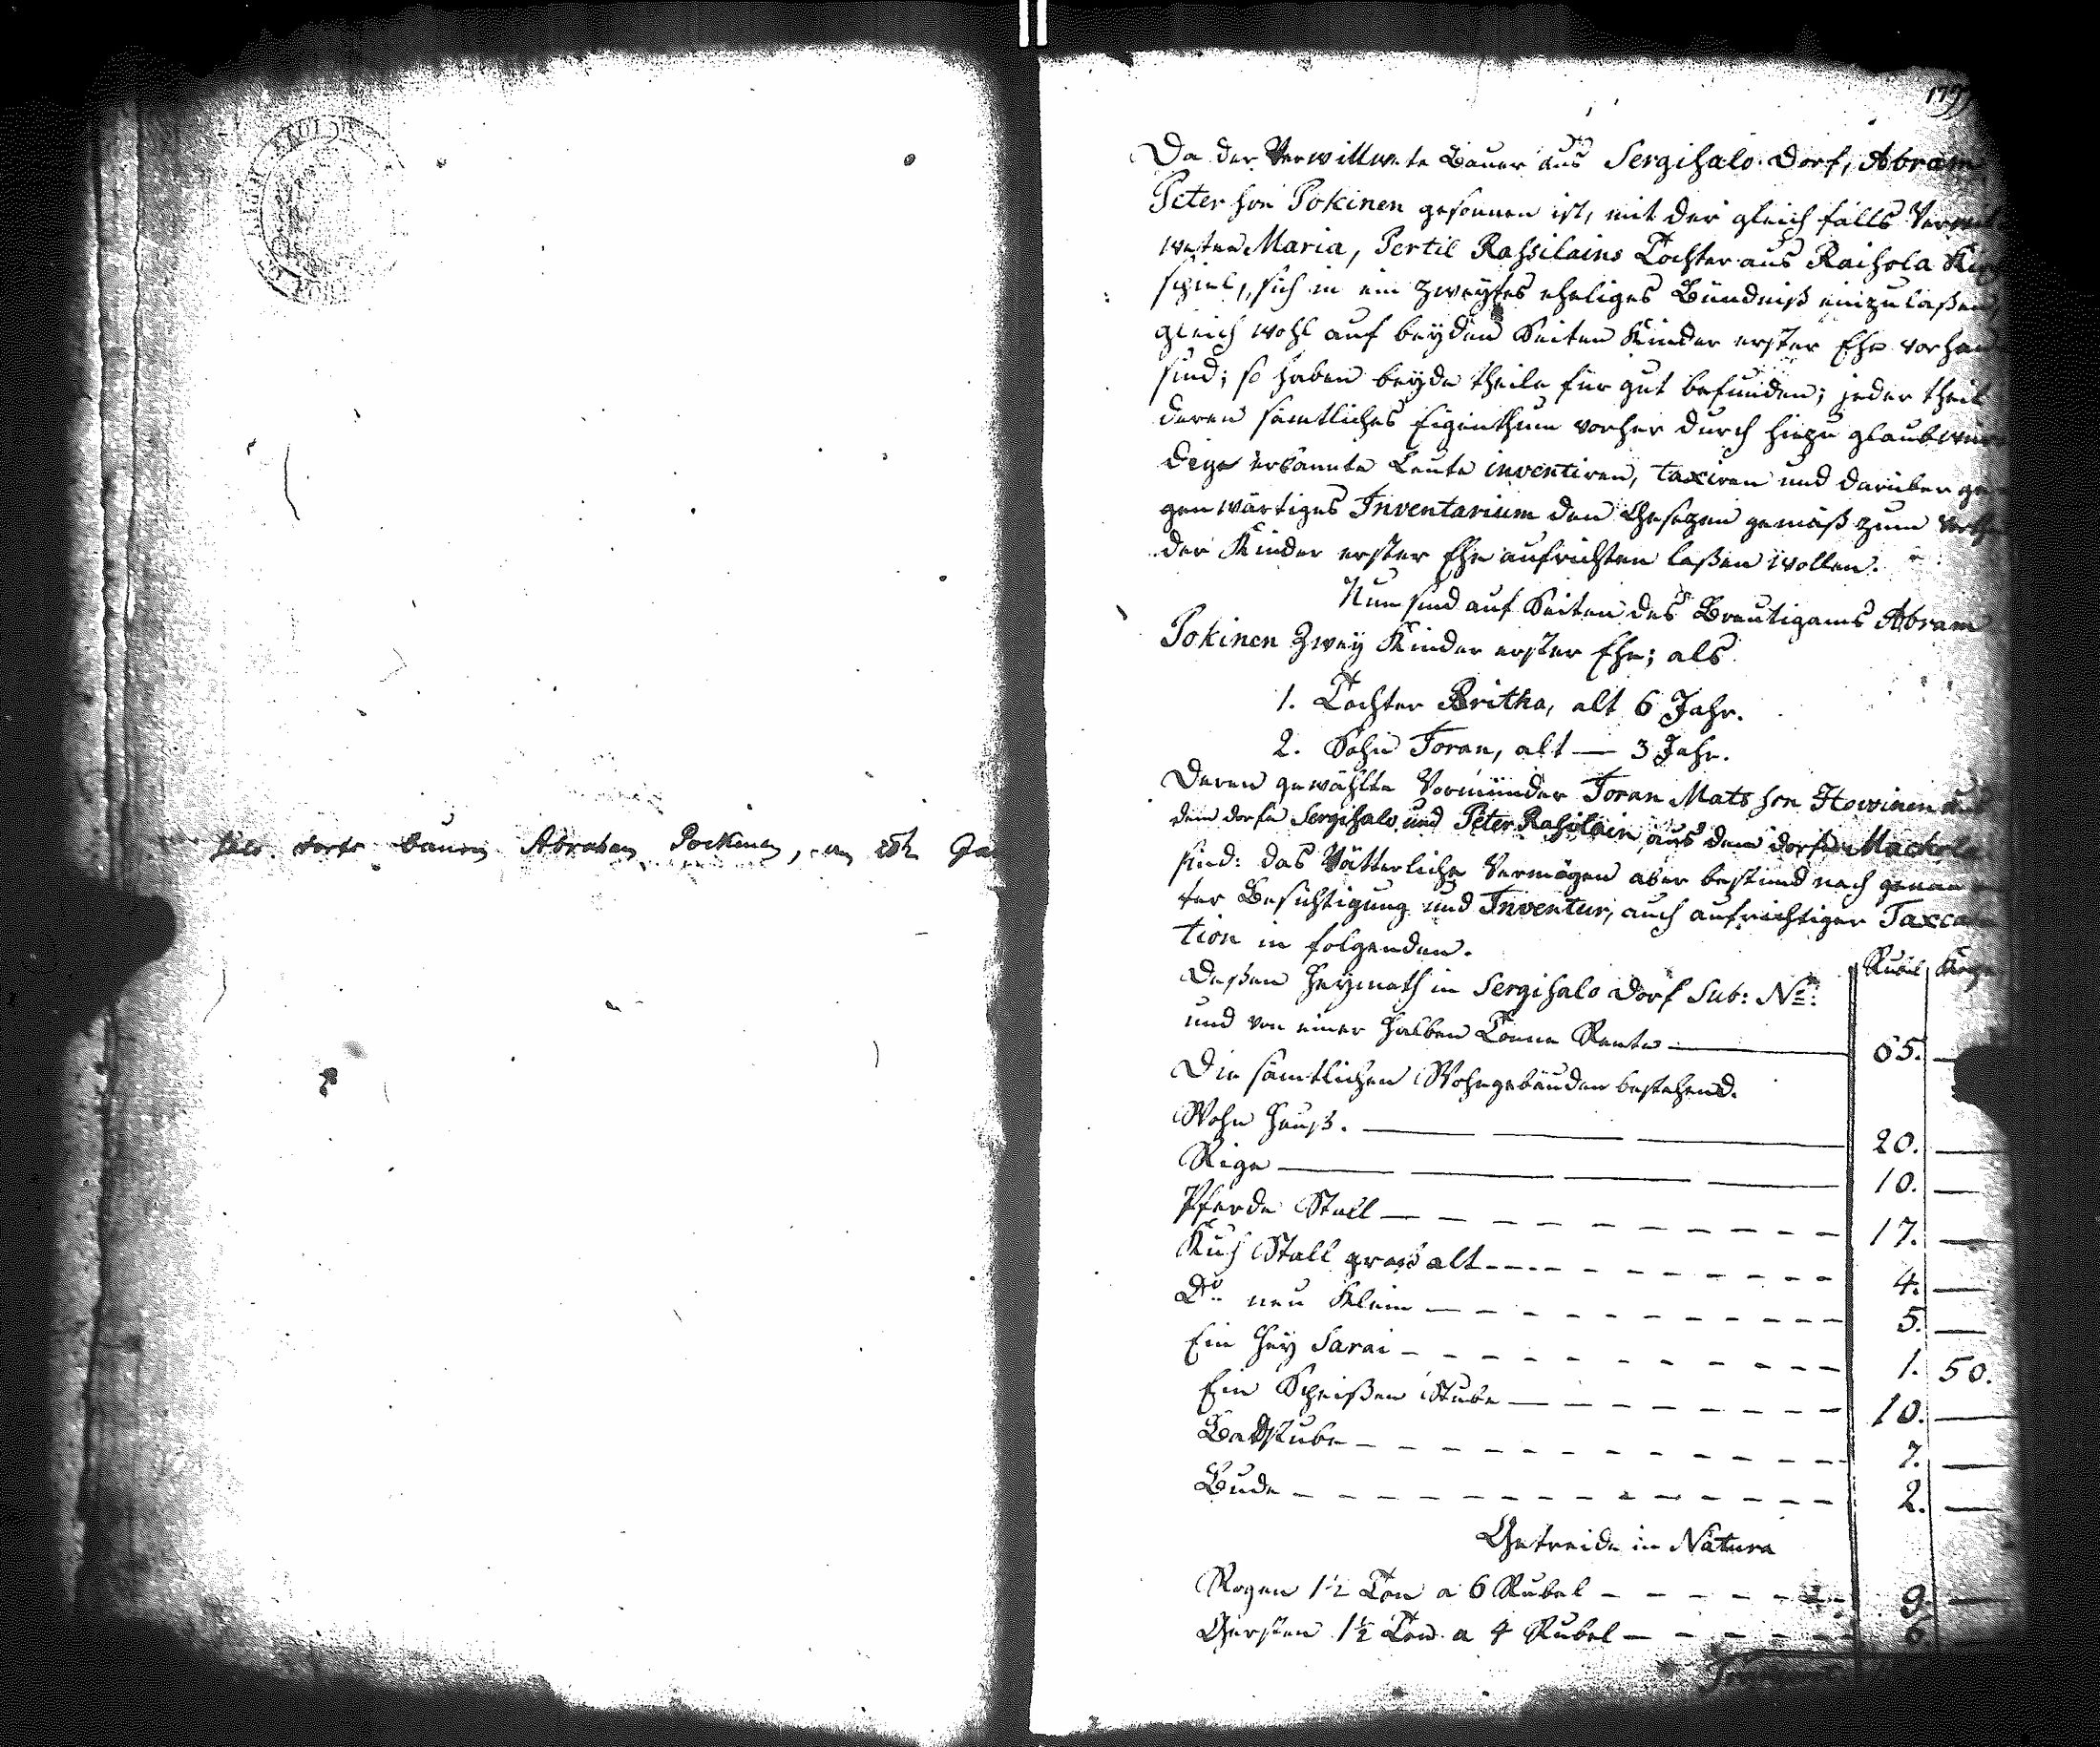 dorfs bauren Abraham Pockinen,
179
Da der Verwittwete Bauer aus Sergihalo Dorf, Abram
Peter son Pokinen gesonnen ist, mit der gleich falls Verwitt
weten Maria, Pertil Rahsilains Tochter aus Raihola Kirch
spiel, sich in ein zweytes eheliges Bündniß einzulaßen,
gleich wohl auf beyden Seiten Kinder erster Ehe vorhan
sind; so haben beyde theile für gut befunden; jeder theil
deren sämtliches Eigenthum vorher durch hiezu glaubwür
dige erkannte Leute inventiren, taxiren und darüber ge
genwärtiges Inventarium den Gesezen gemäß zum Vorthe
der Kinder erster Ehe aufrichten laßen wollen.
Nun sind auf Seiten des Breutigams Abram
Pokinen Zwey Kinder erster Ehe; als
1. Tochter Britha, alt 6 Jahr.
2. Sohn Joran, alt — 3 Jahr.
Deren gewählte Vormünder Joran Mats son Howinen aus
dem dorfe Sergihalo und Peter Rahsilain aus dem dorfe Mackola
sind: das Vätterliche Vermögen aber bestund nach genau
ter Besichtigung und Inventur, auch aufrichtiger Taxca
tion in folgenden.
Rubel Kope
Deßen Heymath in Sergihalo Dorf Sub: No:
und von einer halben Tonne Rente — 65. —
Die sämtlichen Wohngebäuden bestehend.
Wohn Hauß. — 20. —
Rige — 10. —
Pferde Stall — 17. —
Kuh Stall groß alt — 4. —
Do neu Klein — 5. —
Ein Hey Sarai — 1. 50.
Ein Speißen Stube — 10. —
Badstube — 7. —
Bude — 2. —
Getreide in Natura
Rogen 1½ Ton a 6 Rubel — 9. —
Gersten 1½ Ton a 4 Rubel — 6.